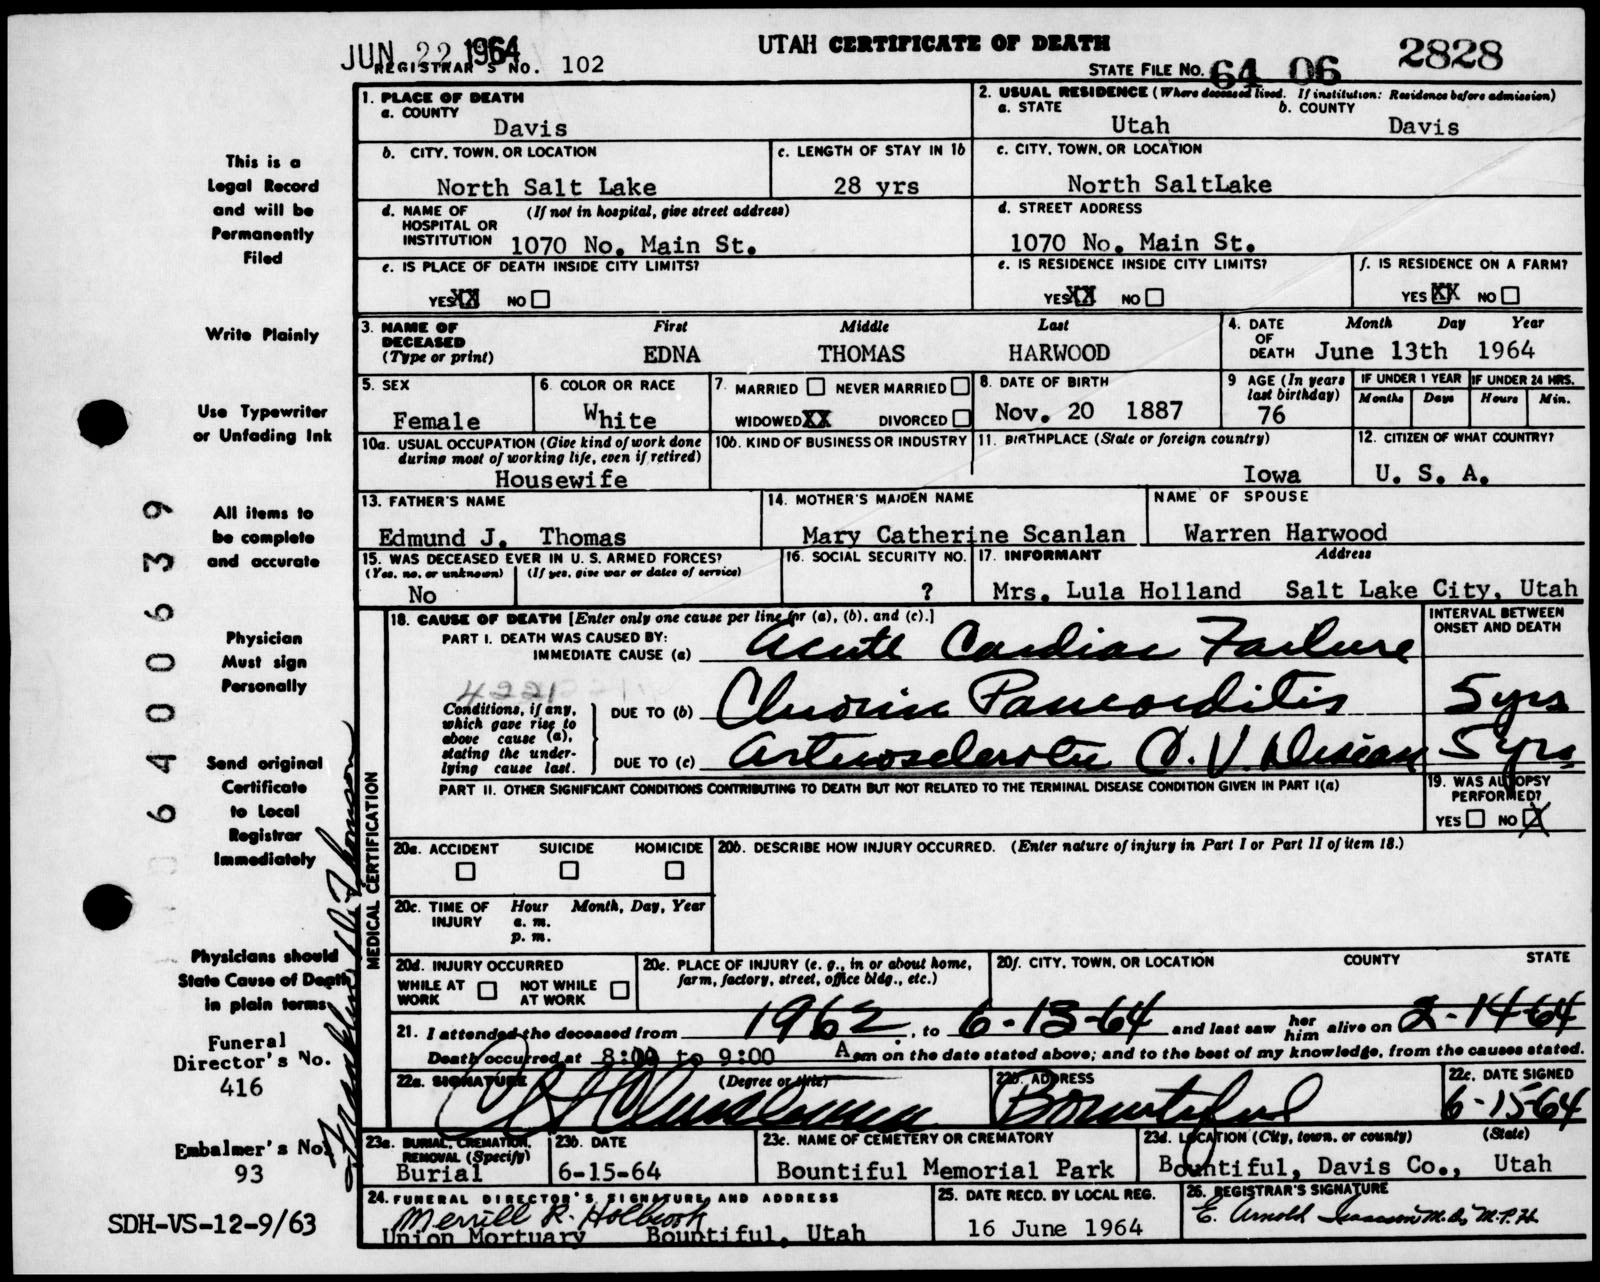 JUN 22 1964
REGISTRAR'S NO. 102
UTAH CERTIFICATE OF DEATH
2828
STATE FILE NO. 64 06
1. PLACE OF DEATH
a. COUNTY
Davis
2. USUAL RESIDENCE (Where deceased lived. If institution: Residence before admission)
a. STATE b. COUNTY
Utah Davis
b. CITY, TOWN, OR LOCATION
North Salt Lake
c. LENGTH OF STAY IN 1b
28 yrs
c. CITY, TOWN, OR LOCATION
North SaltLake
d. NAME OF (If not in hospital, give street address)
HOSPITAL OR
INSTITUTION 1070 No. Main St.
d. STREET ADDRESS
1070 No. Main St.
e. IS PLACE OF DEATH INSIDE CITY LIMITS?
YES XX NO
e. IS RESIDENCE INSIDE CITY LIMITS?
YES XX NO
f. IS RESIDENCE ON A FARM?
YES XX NO
3. NAME OF DECEASED (Type or print)
First Middle Last
EDNA THOMAS HARWOOD
4. DATE OF DEATH
Month Day Year
June 13th 1964
5. SEX
Female
6. COLOR OR RACE
White
7. MARRIED NEVER MARRIED
WIDOWED XX DIVORCED
8. DATE OF BIRTH
Nov. 20 1887
9 AGE (In years last birthday)
76
IF UNDER 1 YEAR IF UNDER 24 HRS.
Months Days Hours Min.
10a. USUAL OCCUPATION (Give kind of work done
during most of working life, even if retired)
Housewife
10b. KIND OF BUSINESS OR INDUSTRY
11. BIRTHPLACE (State or foreign country)
Iowa
12. CITIZEN OF WHAT COUNTRY?
U. S. A.
13. FATHER'S NAME
Edmund J. Thomas
14. MOTHER'S MAIDEN NAME
Mary Catherine Scanlan
NAME OF SPOUSE
Warren Harwood
15. WAS DECEASED EVER IN U. S. ARMED FORCES?
(Yes, no, or unknown) (If yes, give war or dates of service)
No
16. SOCIAL SECURITY NO.
?
17. INFORMANT Address
Mrs. Lula Holland Salt Lake City, Utah
18. CAUSE OF DEATH [Enter only one cause per line for (a), (b), and (c).]
INTERVAL BETWEEN
ONSET AND DEATH
PART I. DEATH WAS CAUSED BY:
IMMEDIATE CAUSE (a) Acute Cardiac Failure
4221
Conditions, if any,
which gave rise to
above cause (a),
stating the under-
lying cause last.
DUE TO (b) Chronic Pancarditis 5 yrs
DUE TO (c) Arteriosclerotic C. V. Disease 5 yrs
PART II. OTHER SIGNIFICANT CONDITIONS CONTRIBUTING TO DEATH BUT NOT RELATED TO THE TERMINAL DISEASE CONDITION GIVEN IN PART I(a)
19. WAS AUTOPSY
PERFORMED?
YES NO X
MEDICAL CERTIFICATION
20a. ACCIDENT SUICIDE HOMICIDE
20b. DESCRIBE HOW INJURY OCCURRED. (Enter nature of injury in Part I or Part II of item 18.)
20c. TIME OF INJURY
Hour Month, Day, Year
a. m.
p. m.
20d. INJURY OCCURRED
WHILE AT WORK NOT WHILE AT WORK
20e. PLACE OF INJURY (e. g., in or about home,
farm, factory, street, office bldg., etc.)
20f. CITY, TOWN, OR LOCATION COUNTY STATE
21. I attended the deceased from 1962, to 6-13-64 and last saw her him alive on 2-14-64
Death occurred at 8:00 to 9:00 A m on the date stated above; and to the best of my knowledge, from the causes stated.
22a. SIGNATURE (Degree or title)
22b. ADDRESS
Bountiful
22c. DATE SIGNED
6-15-64
23a. BURIAL, CREMATION,
REMOVAL (Specify)
Burial
23b. DATE
6-15-64
23c. NAME OF CEMETERY OR CREMATORY
Bountiful Memorial Park
23d. LOCATION (City, town, or county) (State)
Bountiful, Davis Co., Utah
24. FUNERAL DIRECTOR'S SIGNATURE AND ADDRESS
Merrill R. Holbrook
Union Mortuary Bountiful, Utah
25. DATE RECD. BY LOCAL REG.
16 June 1964
26. REGISTRAR'S SIGNATURE
E. Arnold Isaacson M.D., M.P.H.
This is a
Legal Record
and will be
Permanently
Filed
Write Plainly
Use Typewriter
or Unfading Ink
All items to
be complete
and accurate
Physician
Must sign
Personally
Send original
Certificate
to Local
Registrar
Immediately
Physicians should
State Cause of Death
in plain terms
Funeral
Director's No.
416
Embalmer's No.
93
SDH-VS-12-9/63
6400639